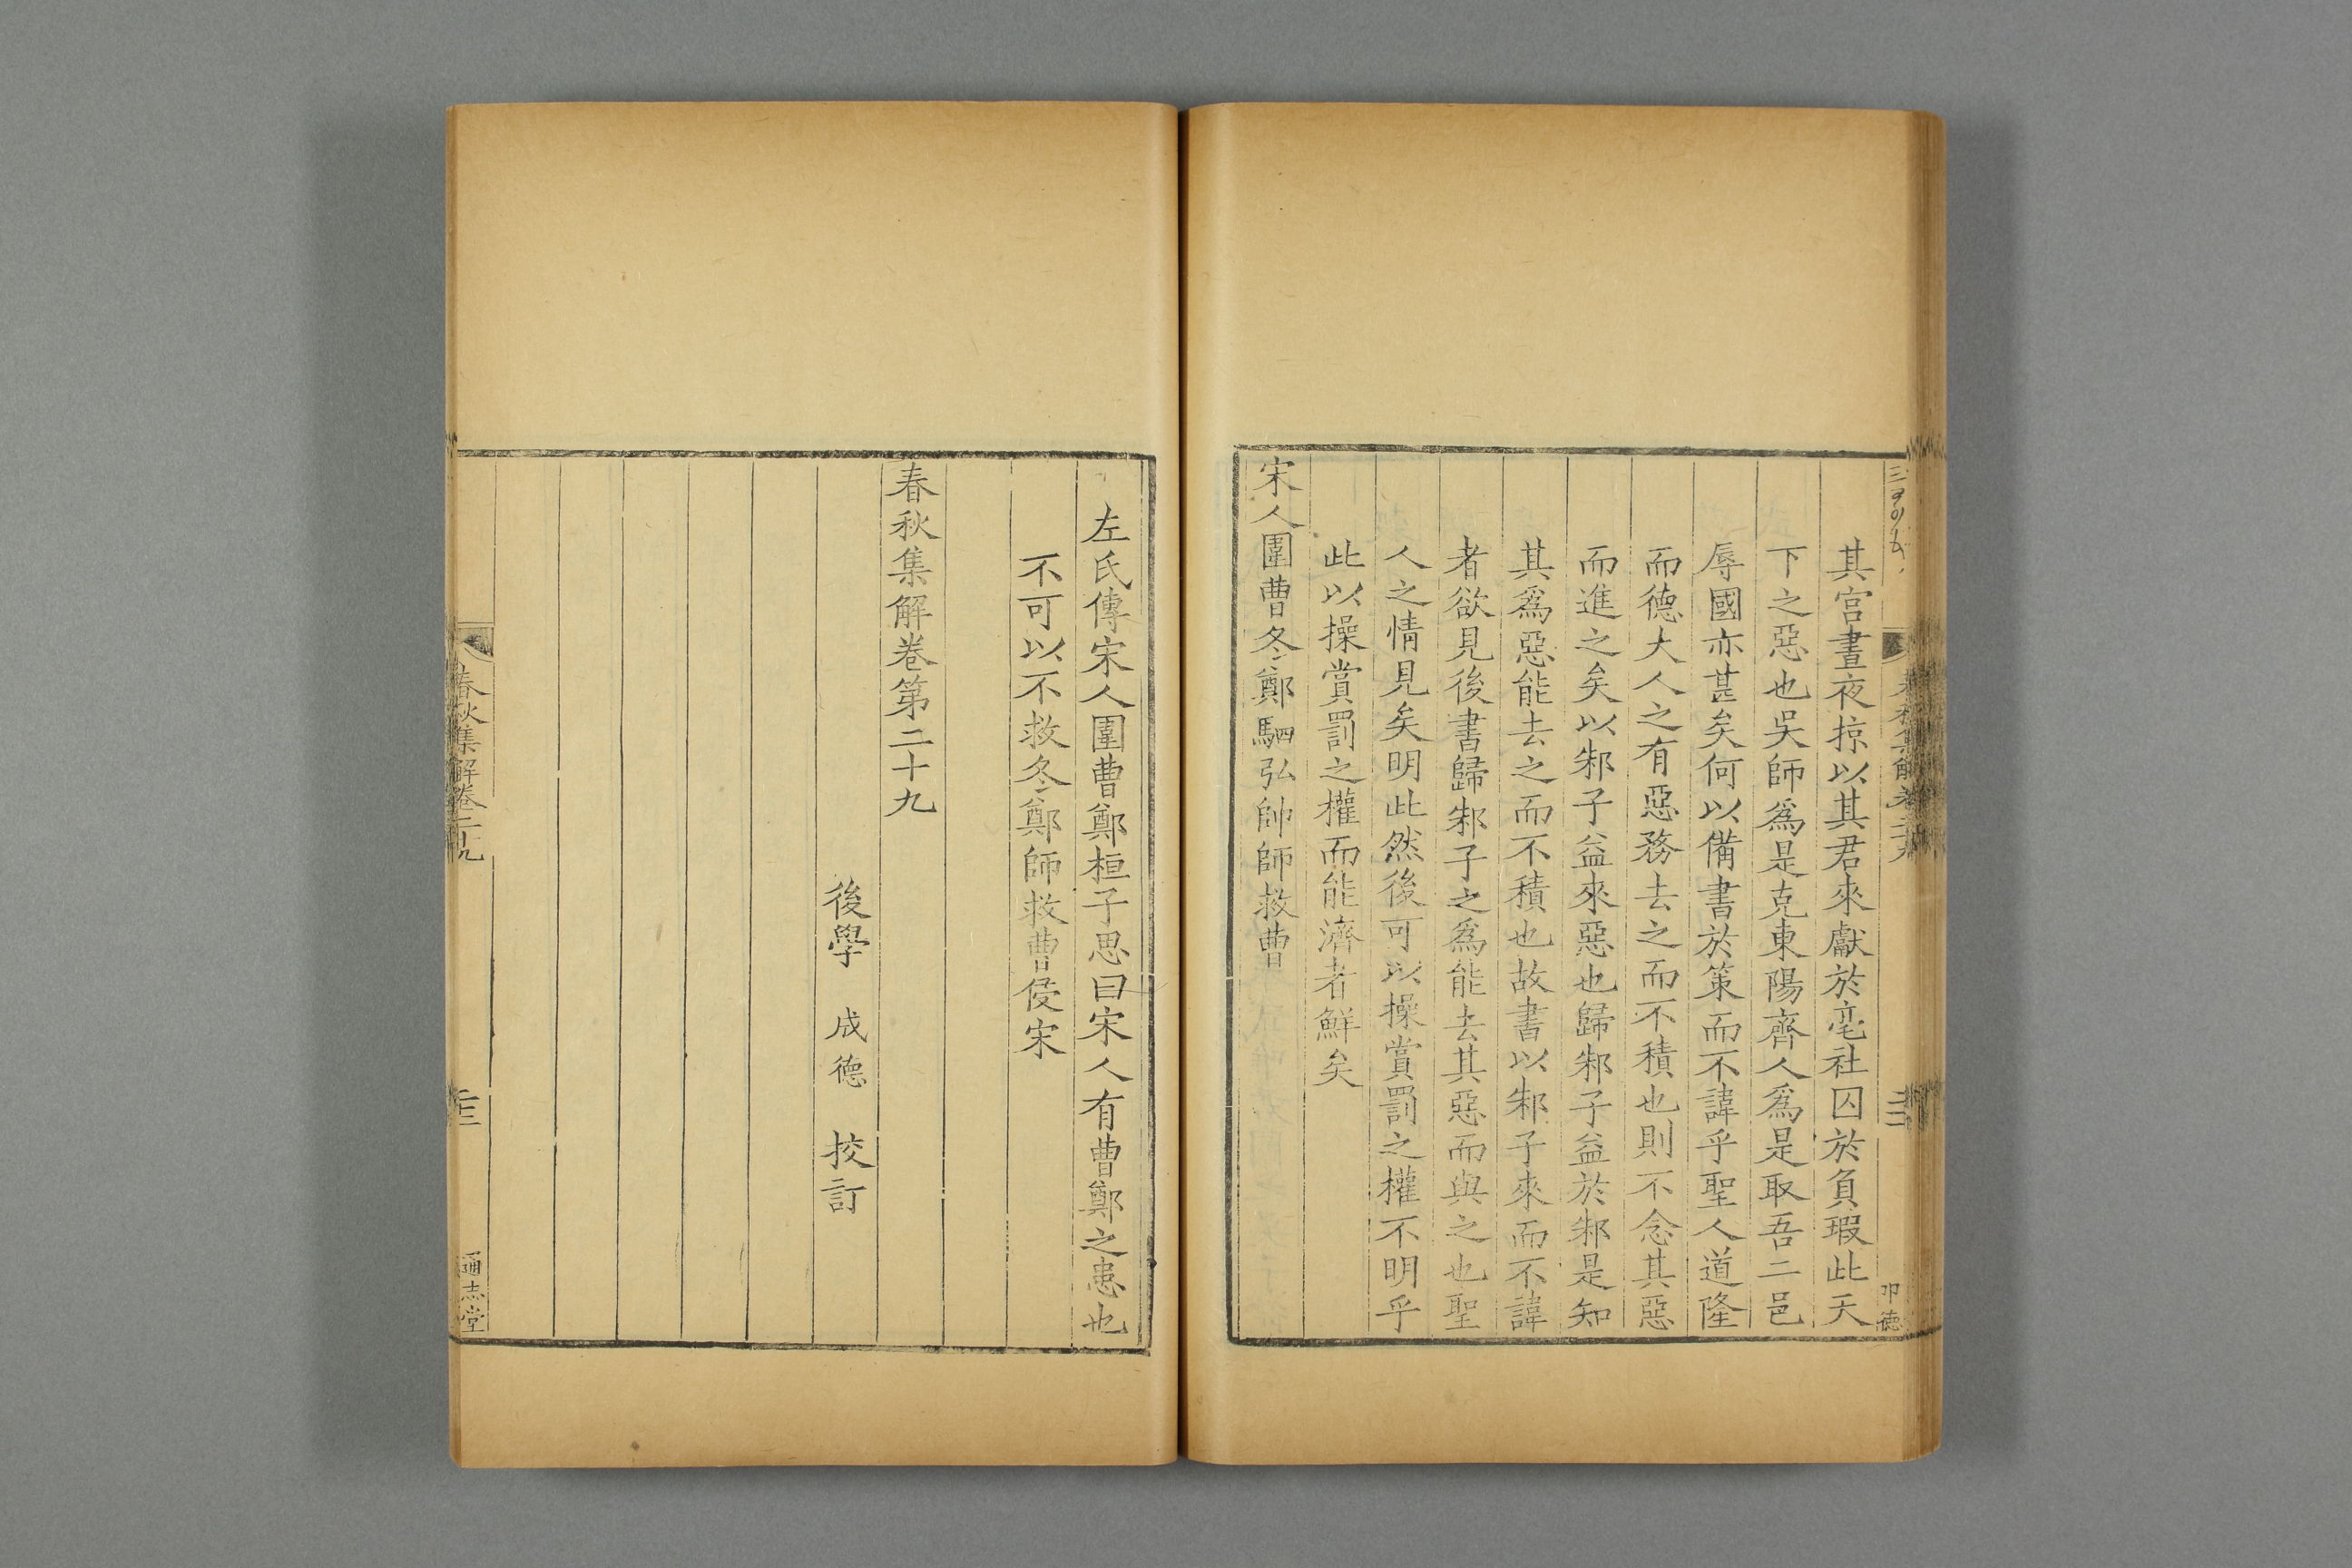 其宫晝夜掠以其君來獻於亳社囚於負瑕此天
下之惡也吳師爲是克東陽齊人爲是取吾二邑
辱國亦甚矣何以備書於策而不諱乎聖人道隆
而德大人之有惡務去之而不積也則不念其惡
而進之矣以邾子益來惡也歸邾子益於邾是知
其爲惡能去之而不積也故書以邾子來而不諱
者欲見後書歸邾子之爲能去其惡而與之也聖
人之情見矣明此然後可以操賞罰之權不明乎
此以操賞罰之權而能濟者鮮矣
宋人圍曹冬鄭駟弘帥師救曹
左氏傳宋人圍曹鄭桓子思曰宋人有曹鄭之患也
不可以不救冬鄭師救曹侵宋
春秋集解卷第二十九
後學 成德 挍訂
春秋集解卷二十九
通志堂